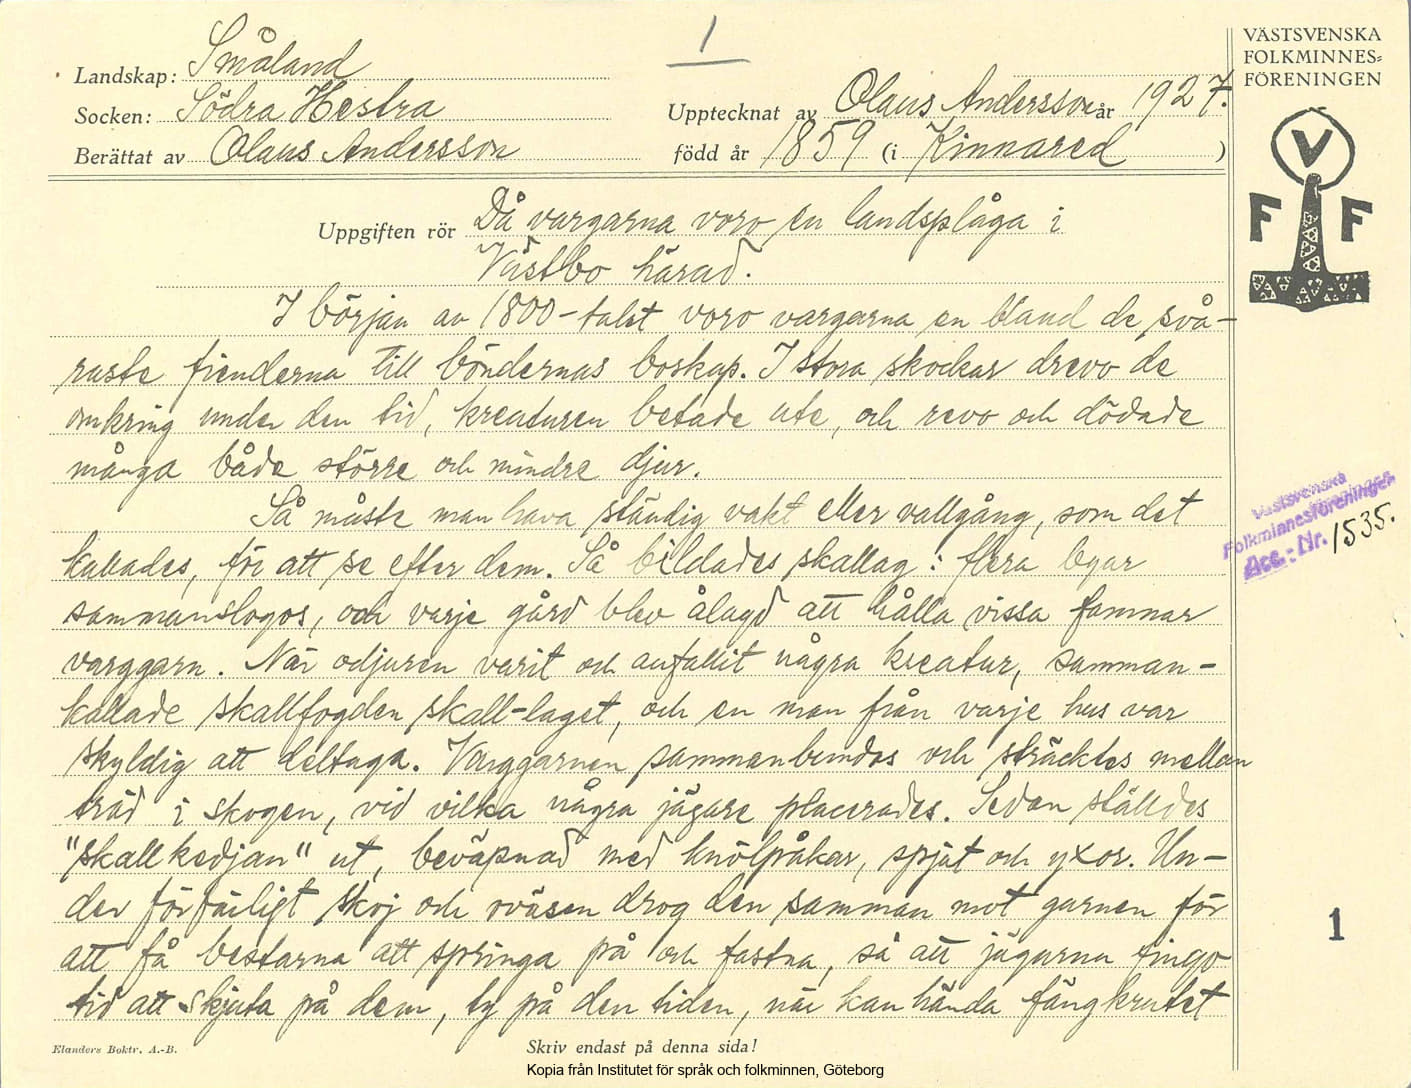 1
VÄSTSVENSKA
FOLKMINNES=
FÖRENINGEN
Landskap: Småland
Socken: Södra Hestra
Upptecknat av Olaus Andersson år 1927.
Berättat av Olaus Andersson
född år 1859 (i Kinnared)
V
F F
Uppgiften rör Då vargarna voro en landsplåga i
Västbo härad.
I början av 1800-talet voro vargarna en bland de svå-
raste fienderna till böndernas boskap. I stora skockar drevo de
omkring under den tid, kreaturen betade ute, och revo och dödade
många både större och mindre djur.
Så måste man hava ständig vakt eller vallgång, som det
kallades, för att se efter dem. Så bildades skallag: flera byar
sammanslogos, och varje gård blev ålagd att hålla vissa famnar
varggarn. När odjuren varit och anfallit några kreatur, samman-
kallade skallfogden skall-laget, och en man från varje hus var
skyldig att deltaga. Varggarnen sammanbundos och sträcktes mellan
träd i skogen, vid vilka några jägare placerades. Sedan ställdes
"skallkedjan" ut, beväpnad med knölpåkar, spjut och yxor. Un-
der förfärligt skoj och oväsen drog den samman mot garnen för
att få bestarna att springa på och fastna, så att jägarna fingo
tid att skjuta på dem, ty på den tiden, när kanhända fängkrutet
Västsvenska
Folkminnesföreningen
Acc.: Nr. 1535.
1
Elanders Boktr. A.-B.
Skriv endast på denna sida!
Kopia från Institutet för språk och folkminnen, Göteborg